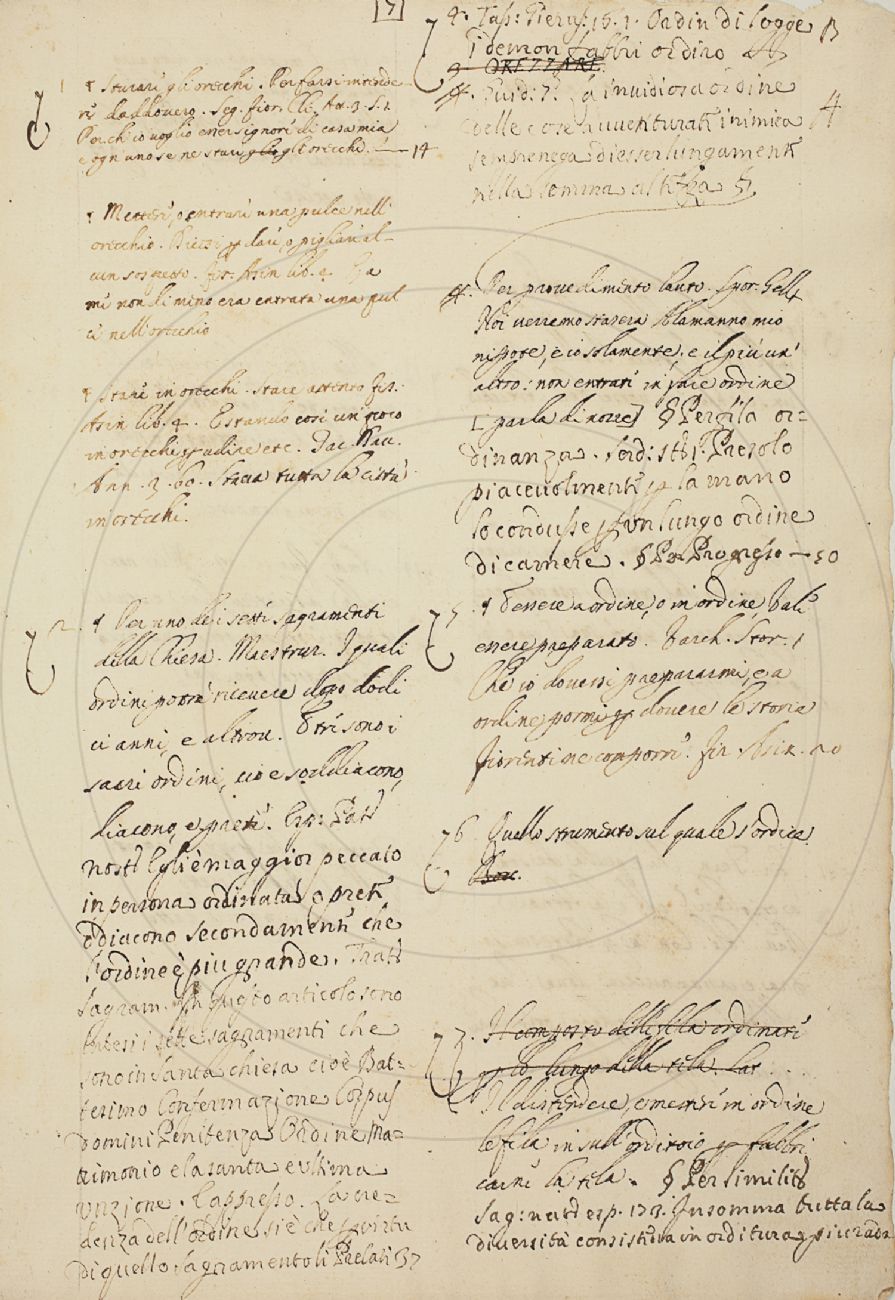 [7]
¶ Sturare gli orecchi. Per farsi intende-
re daddovero. Seg. Fior. Cli. At. 3. S. 1.
Perch' io voglio esser signore di casa mia
e ogn'uno se ne sturi gli orecchi. — 14
¶ Mettere, o entrare una pulce nell'
orecchio. Dicesi p dare, o pigliare al-
cun sospetto. Fir. Asin lib. 4.
mi non di mino era entrata una pul
ce nell'orecchio
¶ Stare in orecchi. stare attento Fir.
Asin lib. 4. Estando così un poco
in orecchi p udire etc.
Ann. 3. 60. Stava tutta la città
in orecchi.
2. ¶ Per uno dei setti sagramenti
della Chiesa. Maestruz. I quali
ordini potrà ricevere dopo dodi
ci anni, e altrove. E tre sono i
sacri ordini, cioè soddiacono,
diacono, e prete. Esp: Pat
nost Egli è maggior peccato
in persona ordinata o prete
o diacono secondamente che
l'ordine è più grande. Tratt
Sagram. In questo articolo sono
intesi i sette sagramenti che
sono in Santa chiesa cioè Bat-
tesimo Confermazione Corpus
Domini Penitenza Ordine Ma-
trimonio e la santa e ultima
unzione. E appresso. La cre-
denza dell'ordine si è che p virtù
di quello sagramento li Prelati 37
4. Tass: Gierus: 16. 1. Ordin di logge
i demon fabbri ordiro
3. OREZZARE.
Guid: 7: La invidiosa ordine
delle cose avventurate inimica
sempre nega di esser lungamente
nella somma altezza
Per provedimento lauto. Spor: Gell
Noi verremo stasera Alamanno mio
nipote, e io solamente, e il più un'
altro: non entrare in fare ordine
[parla di nozze] § Per fila or-
dinanza. Presolo
piacevolmente p la mano
lo condusse p un lungo ordine
di camere. § Per Progresso — 50
5. ¶ Essere a ordine, o in ordine, Vale
essere preparato. Varch. Stor. 1
Che io dovessi prepararmi, e a
ordine pormi p dovere le storie
fiorentine comporre. Fir. Asin. 20
6. Quello strumento sul quale s'ordisce.
7. Il composto delle fila ordinate
p lo lungo della tela. Lat
Il distendere, e mettere in ordine
le fila in sull'orditoio p fabbri
carne la tela. § Per similit
Sag: nat esp. 173. Insomma tutta la
diversità consisteva in orditura più rada